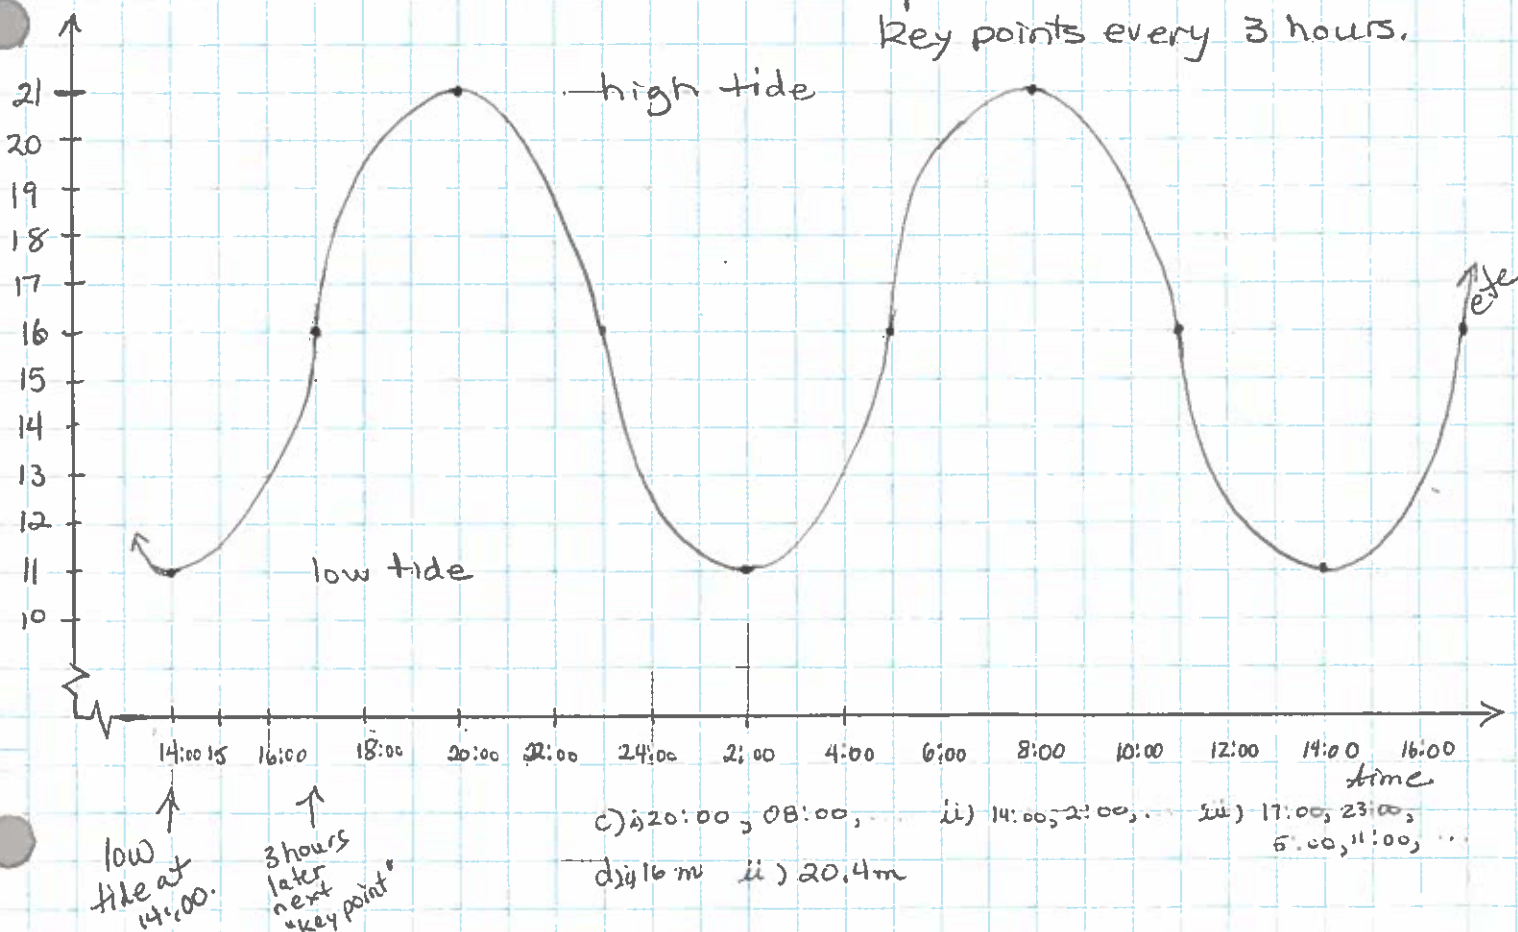 key points every 3 hours.
21
high tide
20
19
18
17
etc
16
15
14
13
12
11
low tide
10
14:00 15 16:00 18:00 20:00 22:00 24:00 2:00 4:00 6:00 8:00 10:00 12:00 14:00 16:00
time
low
tide at
14:00.
3 hours
later
next
"key point"
c) i) 20:00, 08:00, ii) 14:00, 2:00, . iii) 17:00, 23:00,
5:00, 11:00, ...
d) i) 16 m ii) 20.4m